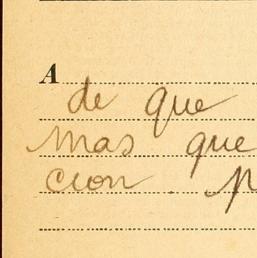 A
de que
mas que
cion.